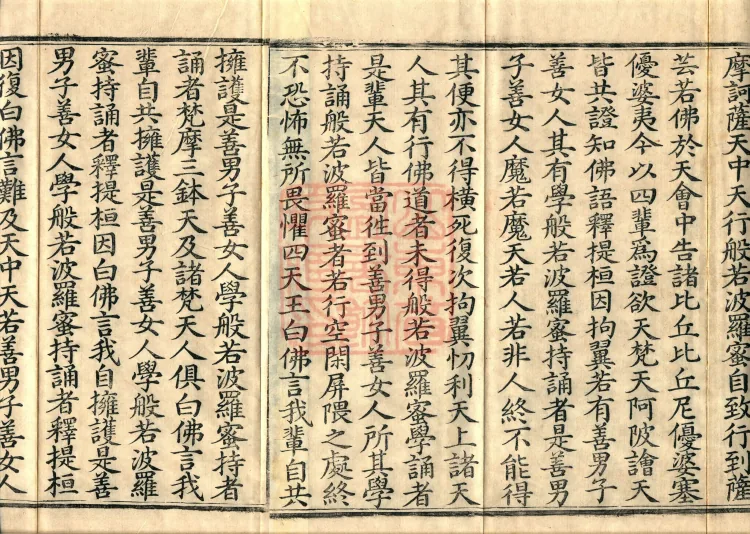 摩訶薩天中天行般若波羅蜜自致行到薩
芸若佛於天會中告諸比丘比丘尼優婆塞
優婆夷今以四輩爲證欲天梵天阿陂譮天
皆共證知佛語釋提桓因拘翼若有善男子
善女人其有學般若波羅蜜持誦者是善男
子善女人魔若魔天若人若非人終不能得
其便亦不得橫死復次拘翼忉利天上諸天
人其有行佛道者未得般若波羅蜜學誦者
是輩天人皆當徃到善男子善女人所其學
持誦般若波羅蜜者若行空閑屏隈之處終
不恐怖無所畏懼四天王白佛言我輩自共
擁護是善男子善女人學般若波羅蜜持者
誦者梵摩三鉢天及諸梵天人俱白佛言我
輩自共擁護是善男子善女人學般若波羅
蜜持誦者釋提桓因白佛言我自擁護是善
男子善女人學般若波羅蜜持誦者釋提桓
因復白佛言難及天中天若善男子善女人